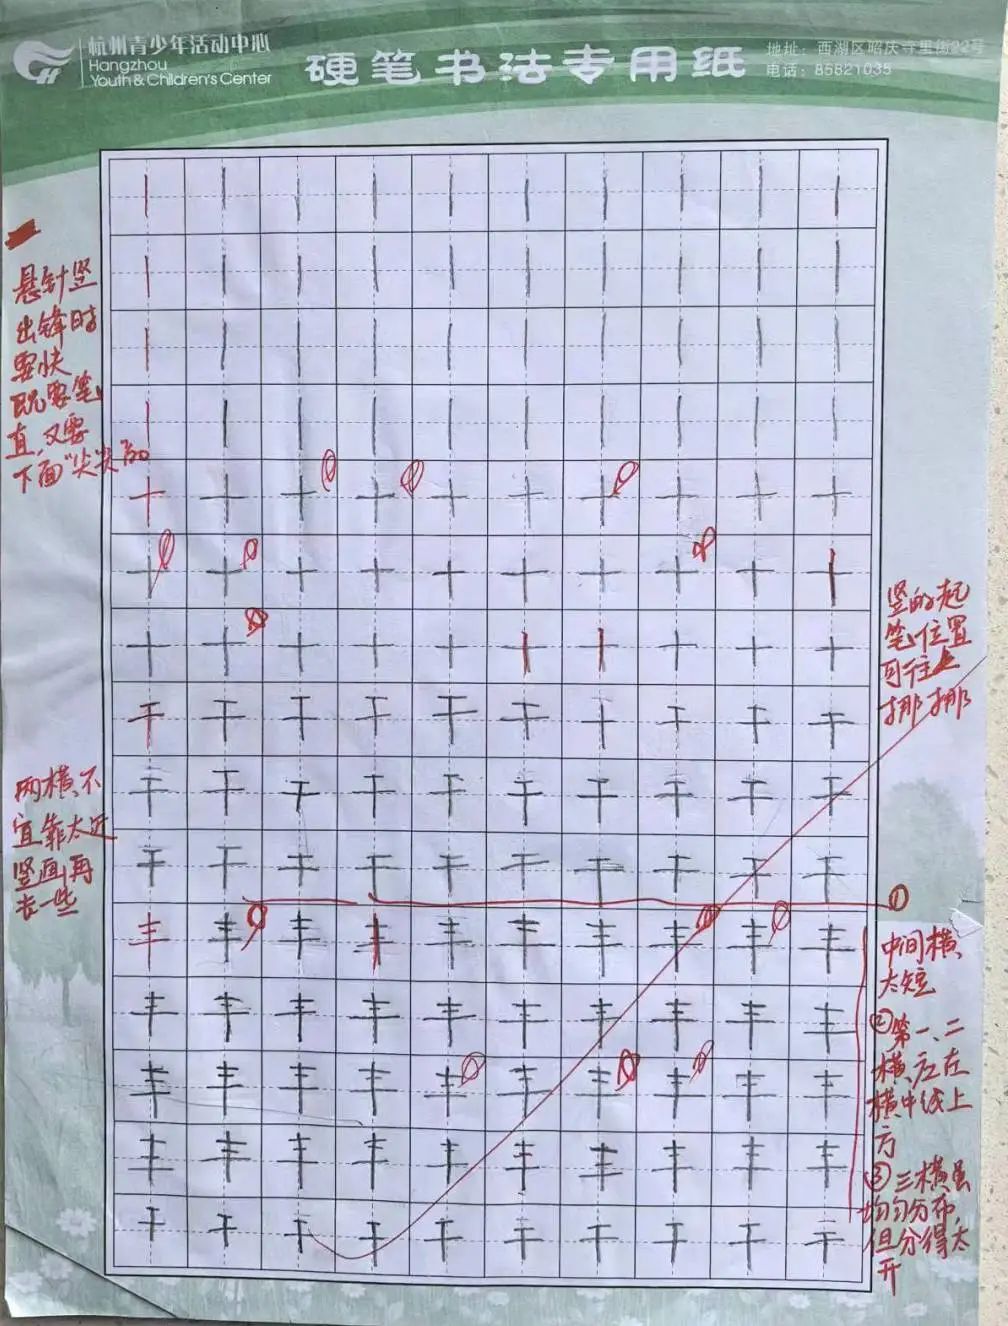 杭州青少年活动中心
Hangzhou
Youth & Children's Center
硬笔书法专用纸
地址：西湖区昭庆寺里街22号
电话：85821035
悬针竖
出锋时
要快
既要笔
直，又要
下面“尖尖”的
十 十 十 十 十 十 十 十 十 十
十 十 十 十 十 十 十 十 十 十
十 十 十 十 十 十 十 十 十 十
竖的起
笔位置
可往上
挪挪
干 干 干 干 干 干 干 干 干 干
干 干 干 干 干 干 干 干 干 干
干 干 干 干 干 干 干 干 干 干
两横不
宜靠太近
竖画再
长一些
丰 丰 丰 丰 丰 丰 丰 丰 丰 丰
丰 丰 丰 丰 丰 丰 丰 丰 丰 丰
丰 丰 丰 丰 丰 丰 丰 丰 丰 丰
丰 丰 丰 丰 丰 丰 丰 丰 丰 丰
干 干 干 干 干 干 干 干 干 干
①
中间横
太短
②第一、二
横应在
横中线上
方
③三横虽
均匀分布，
但分得太
开